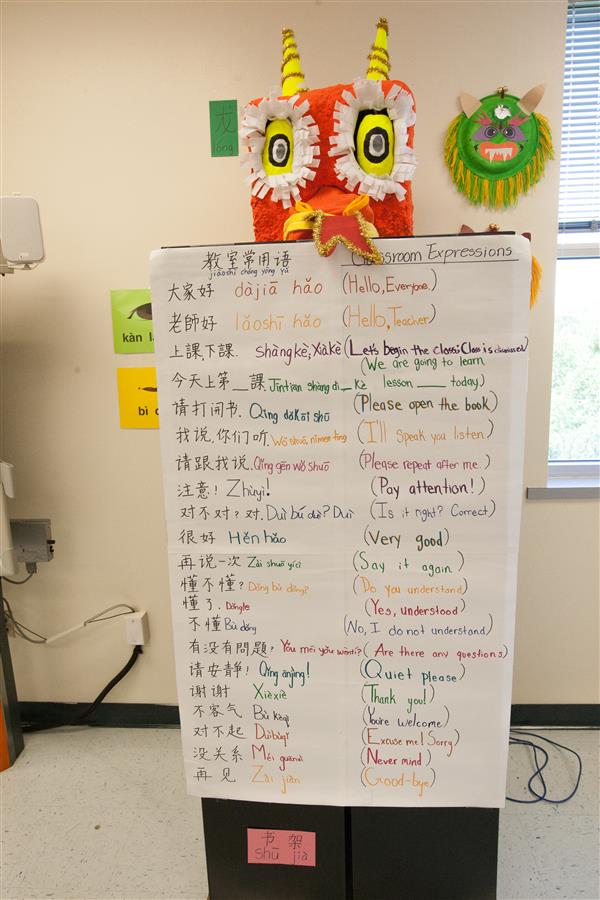 龙
lóng
教室常用语 Classroom Expressions
jiàoshì cháng yòng yǔ
大家好 dàjiā hǎo (Hello, Everyone.)
老師好 lǎoshī hǎo (Hello, Teacher)
上課,下課. shàngkè, Xiàkè (Let's begin the class; Class is dismissed)
今天上第__課 Jīntiān shàng dì__kè (We are going to learn
lesson ____ today.)
请打开书. Qǐng dǎ kāi shū (Please open the book)
我说,你们听. Wǒ shuō, nǐmen tīng (I'll speak you listen)
请跟我说. Qǐng gēn wǒ shuō (Please repeat after me.)
注意! Zhùyì! (Pay attention!)
对不对?对. Duì bú duì? Duì (Is it right? Correct)
很好 Hěn hǎo (Very good)
再说一次 Zài shuō yícì (Say it again)
懂不懂? Dǒng bù dǒng? (Do you understand)
懂了. Dǒngle (Yes, understood)
不懂 Bù dǒng (No, I do not understand)
有没有問題? Yǒu méi yǒu wèntí? (Are there any questions)
请安静! Qǐng ānjìng! (Quiet please)
谢谢 Xièxiè (Thank you!)
不客气 Bù kèqì (You're welcome)
对不起 Duìbùqǐ (Excuse me! Sorry)
没关系 Méi guānxì (Never mind)
再见 Zài jiàn (Good-bye)
kàn
bí
书架
shū jià